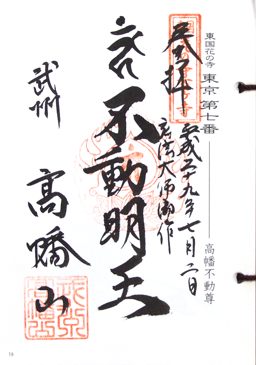 東国花の寺 東京 第七番
高幡不動尊
奉拝
平成二十九年七月二日
弘法大師御作
不動明王
武州
高幡山
16